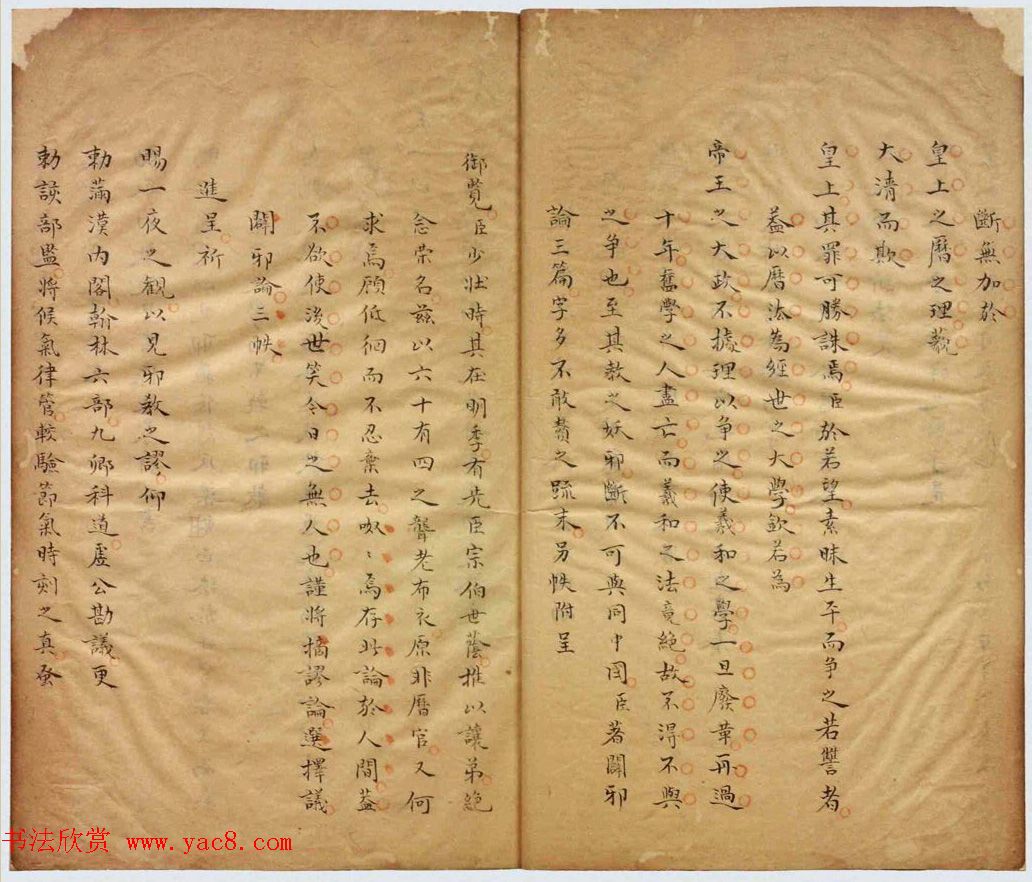 斷無加於
皇上之曆之理藐
大清而欺
皇上其罪可勝誅焉臣於若望素昧生平而爭之若讐者
葢以曆法為經世之大學欽若為
帝王之大政不據理以爭之使羲和之學一旦廢革再過
十年舊學之人盡亡而羲和之法竟絕故不得不與
之爭也至其教之妖邪斷不可與同中國臣著闢邪
論三篇字多不敢賷之疏末另帙附呈
御覽臣少壯時其在明季有先臣宗伯世蔭推以讓弟絕
念荣名茲以六十有四之聾老布衣原非曆官又何
求焉顧低徊而不忍棄去呶〻焉存此論於人間葢
不欲使後世笑今日之無人也謹將摘謬論選擇議
闢邪論三帙
進呈祈
賜一夜之觀以見邪教之謬仰
勅滿漢內閣翰林六部九卿科道虛公勘議更
勅該部監將候氣律管較驗節氣時刻之真
书法欣赏 www.yac8.com